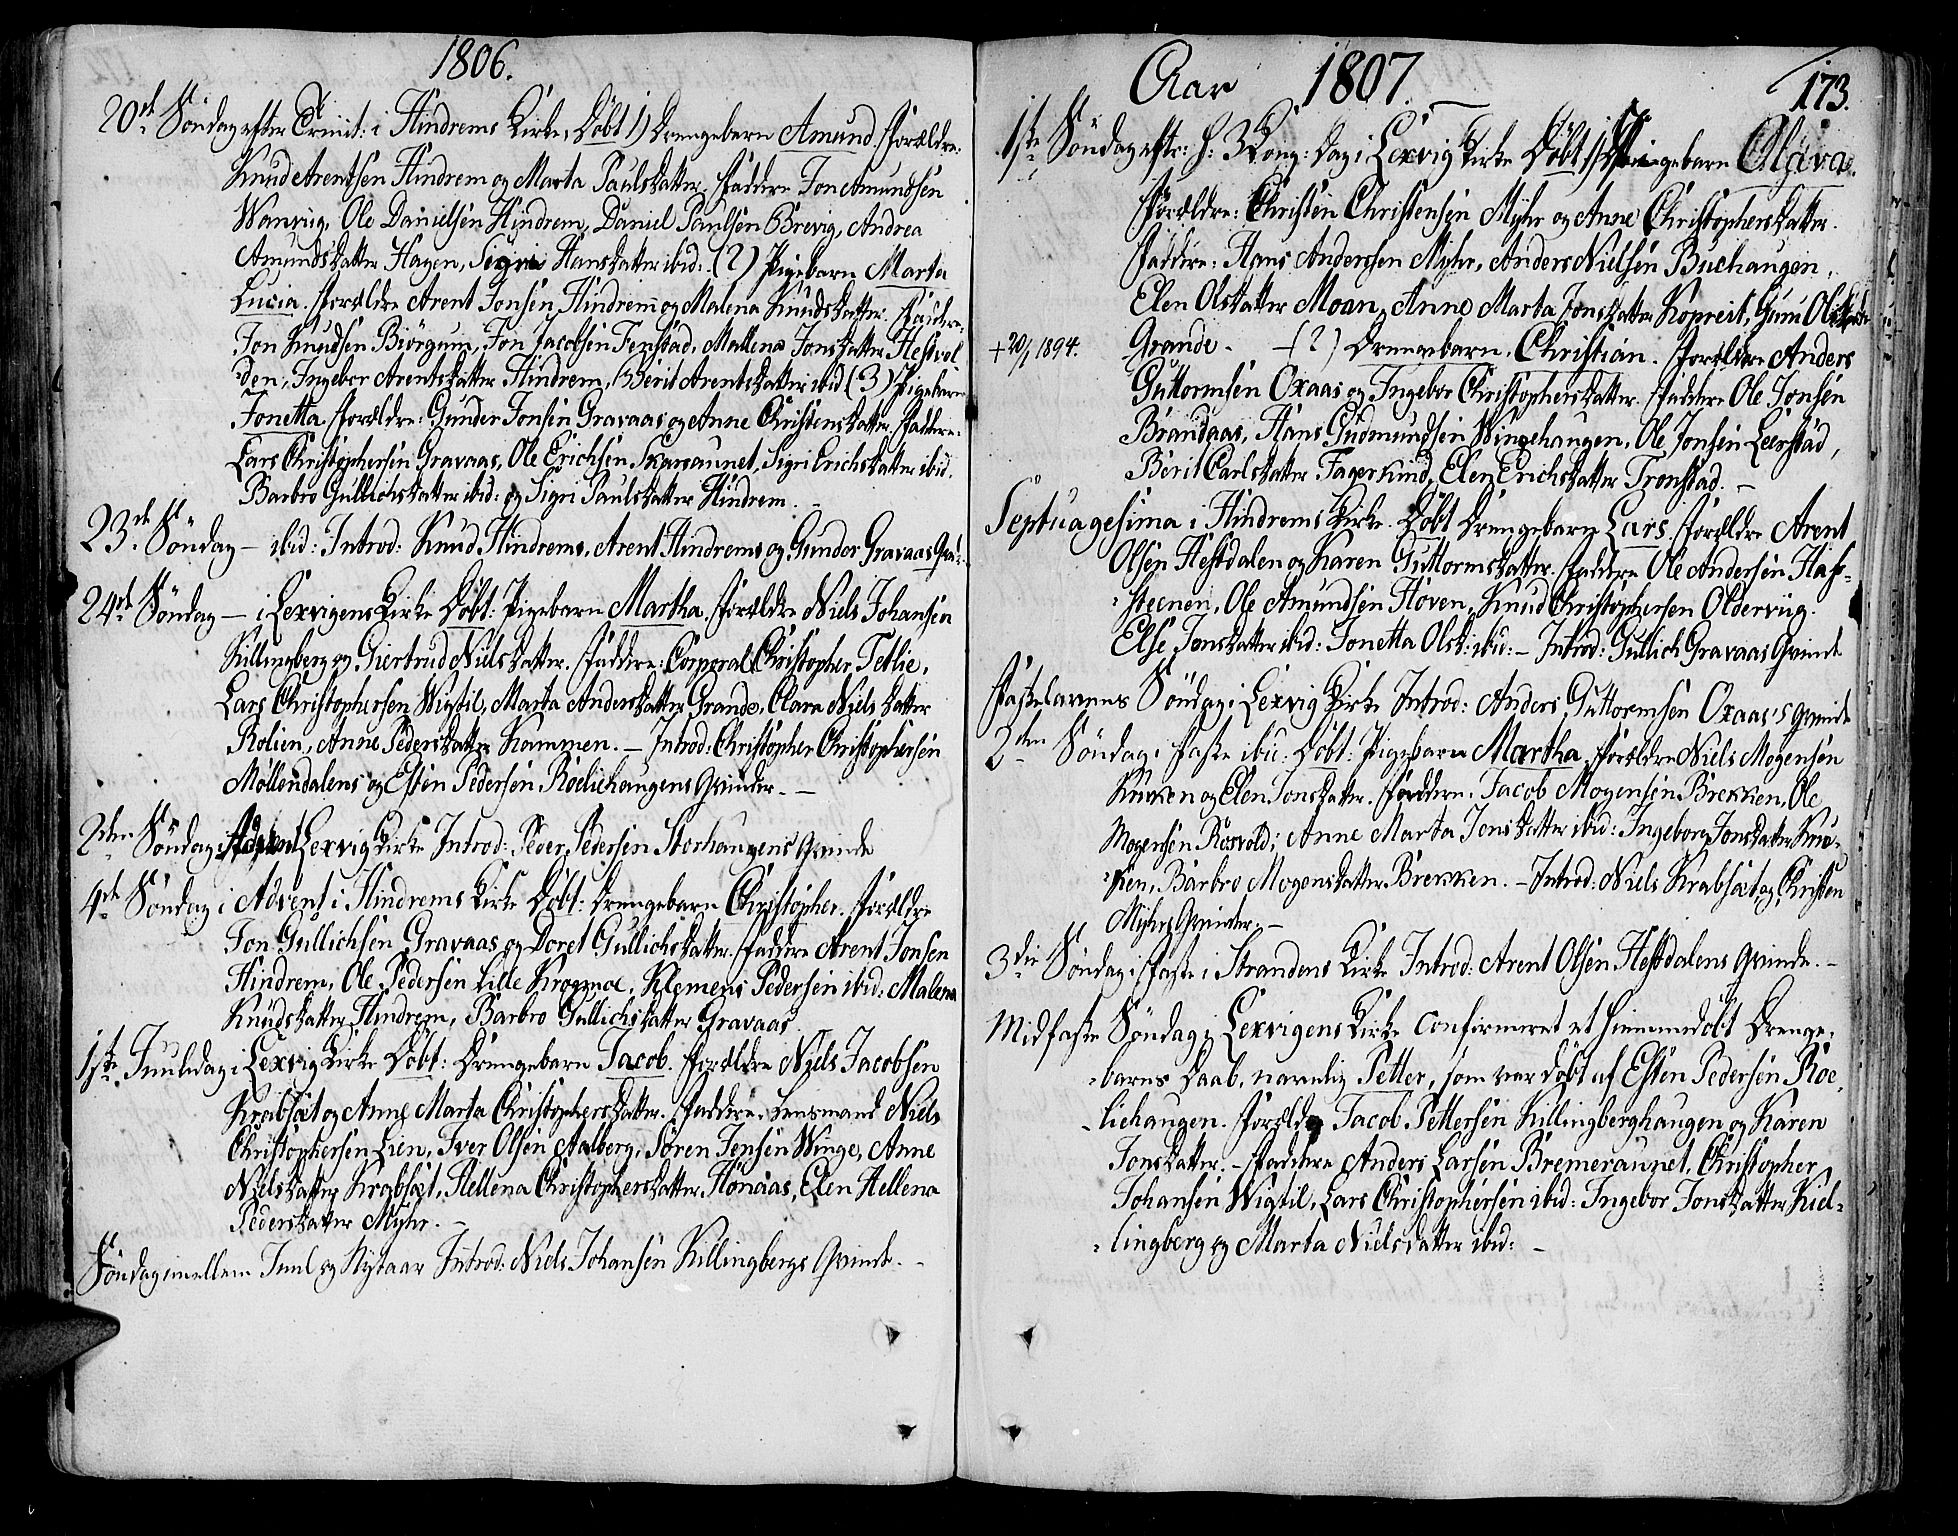 1806.
20de Söndag efter Trinit: i Hindrems Kirke, Döbt 1) Drengebarn Amund. Forældre:
Knud Arentsen Hindrem og Marta Paulsdatter. Faddere Jon Amundsen
Wanvig, Ole Danielsen Hindrem, Daniel Paulsen Brevig, Andrea
Amundsdatter Hagen, Sigri Hansdatter ibid:. (2) Pigebarn Marta
Lucia. Forældre Arent Jonsen Hindrem og Malena Knudsdatter. Faddere
Jon Knudsen Biörgum, Jon Jacobsen Fenstad, Mallena Jonsdatter Hestvol
den, Ingebor Arentsdatter Hindrem, Berit Arentsdatter ibid (3) Pigebarn
Jonetta Forældre: Gunder Jonsen Gravaas og Anne Christensdatter. Faddere:
Lars Christophersen Gravaas, Ole Erichsen Skavaunet, Sigri Erichsdatter ibid.
Barbro Gullichsdatter ibid: og Sigri Paulsdatter Hindrem. -
23de Söndag - ibid: Introd: Knud Hindrems, Arent Hindrems og Gunder Gravaas Qvi:
24de Söndag - i Lexvigens Kirke Döbt: Pigebarn Martha. Forældre Niels Johansen
Killingberg og Giertrud Nielsdatter. Faddere: Corporal Christopher Tetlie,
Lars Christophersen Wigtil, Marta Andersdatter Grande, Clara Niels datter
Rolien, Anne Pedersdatter Kammen. - Introd: Christopher Christophersen
Møllendalens og Esten Pedersen Röelichaugens Qvinder. -
2den Söndag i Advent Lexvig Kirke Introd: Peder Pedersen Storhaugens Qvinde
4de Söndag i Advent i Hindrems Kirke Döbt: Drengebarn Christopher. Forældre
Jon Gullichsen Gravaas og Doret Gullichsdatter. Faddere Arent Jonsen
Hindrem, Ole Pedersen Lille Kragmoe, Klemens Pedersen ibid: Malena
Knudsdatter Hindrem, Barbro Gullichsdatter Gravaas.
1ste Juuledag i Lexvig Kirke Döbt: Drengebarn Jacob. Forældre Niels Jacobsen
Krabsæt og Anne Marta Christophersdatter. Faddere. Lensmand Niels
Christophersen Lien, Iver Olsen Aalberg, Sören Jensen Winge, Anne
Nielsdatter Krabsæt, Hellena Christophersdatter Hönaas, Elen Hellena
Pedersdatter Myhr. -
Söndag imellem Juul og Nytaar Introd: Niels Johansen Killingbergs Qvinde. -
Aar 1807.
173.
1ste Söndag eftr: h: 3 Kong: dag i Lexvig Kirke Döbt 1) Pigebarn Olava.
Forældre: Christen Christensen Myhr og Anne Christophersdatter.
Faddere: Hans Andersen Myhr, Anders Nielsen Buchaugen,
Elen Olsdatter Moan, Anne Marta Jonsdatter Kopreit, Guru Olsdatter
+ 20/1 1894.
Grande. - (2) Drengebarn. Christian. Forældre Anders
Guttormsen Oxaas og Ingebor Christophersdatter. Faddere Ole Jonsen
Brandaas, Hans Gudmundsen Wingehaugen, Ole Jonsen Leerstad,
Berit Carlsdatter Fagerkind, Elen Erichsdatter Tronstad. -
Septuagesima i Hindrems Kirke. Döbt Drengebarn Lars. Forældre Arent
Olsen Hestdalen og Karen Guttormsdatter. Faddere Ole Andersen Haf-
steenen, Ole Amundsen Höven, Knud Christophersen Oldervig.
Else Jonsdatter ibid: Jonetta Olsd: ibid: - Introd: Gullich Gravaas Qvinde
Fastelavens Söndag i Lexvig Kirke Introd: Anders Guttormsen Oxaas's Qvinde
2den Söndag i Faste ibid: Döbt: Pigebarn Martha Forældre Niels Mogensen
Kruken og Elen Jonsdatter. Faddere. Jacob Mogensen Brekken, Ole
Mogensen Rösvold; Anne Marta Jonsdatter ibid: Ingeborg Jonsdatter Kru-
ken, Barbro Mogensdatter Brekken. - Introd: Niels Krabsæt og Christen
Myhrs Qvinder. -
3die Söndag i Faste i Strandens Kirke Introd: Arent Olsen Hestdalens Qvinde. -
Midfaste Söndag i Lexvigens Kirke Confirmeret et hiemmedöbt Drenge-
barns Daab, navnlig Petter, som var döbt af Esten Pedersen Röe
lichaugen. Forældre Jacob Pettersen Killingberghaugen og Karen
Jonsdatter. - Faddere Anders Larsen Bremeraunet, Christopher
Johansen Wigtil, Lars Christophersen ibid: Ingebor Jonsdatter Kiel-
lingberg og Marta Nielsdatter ibid: -